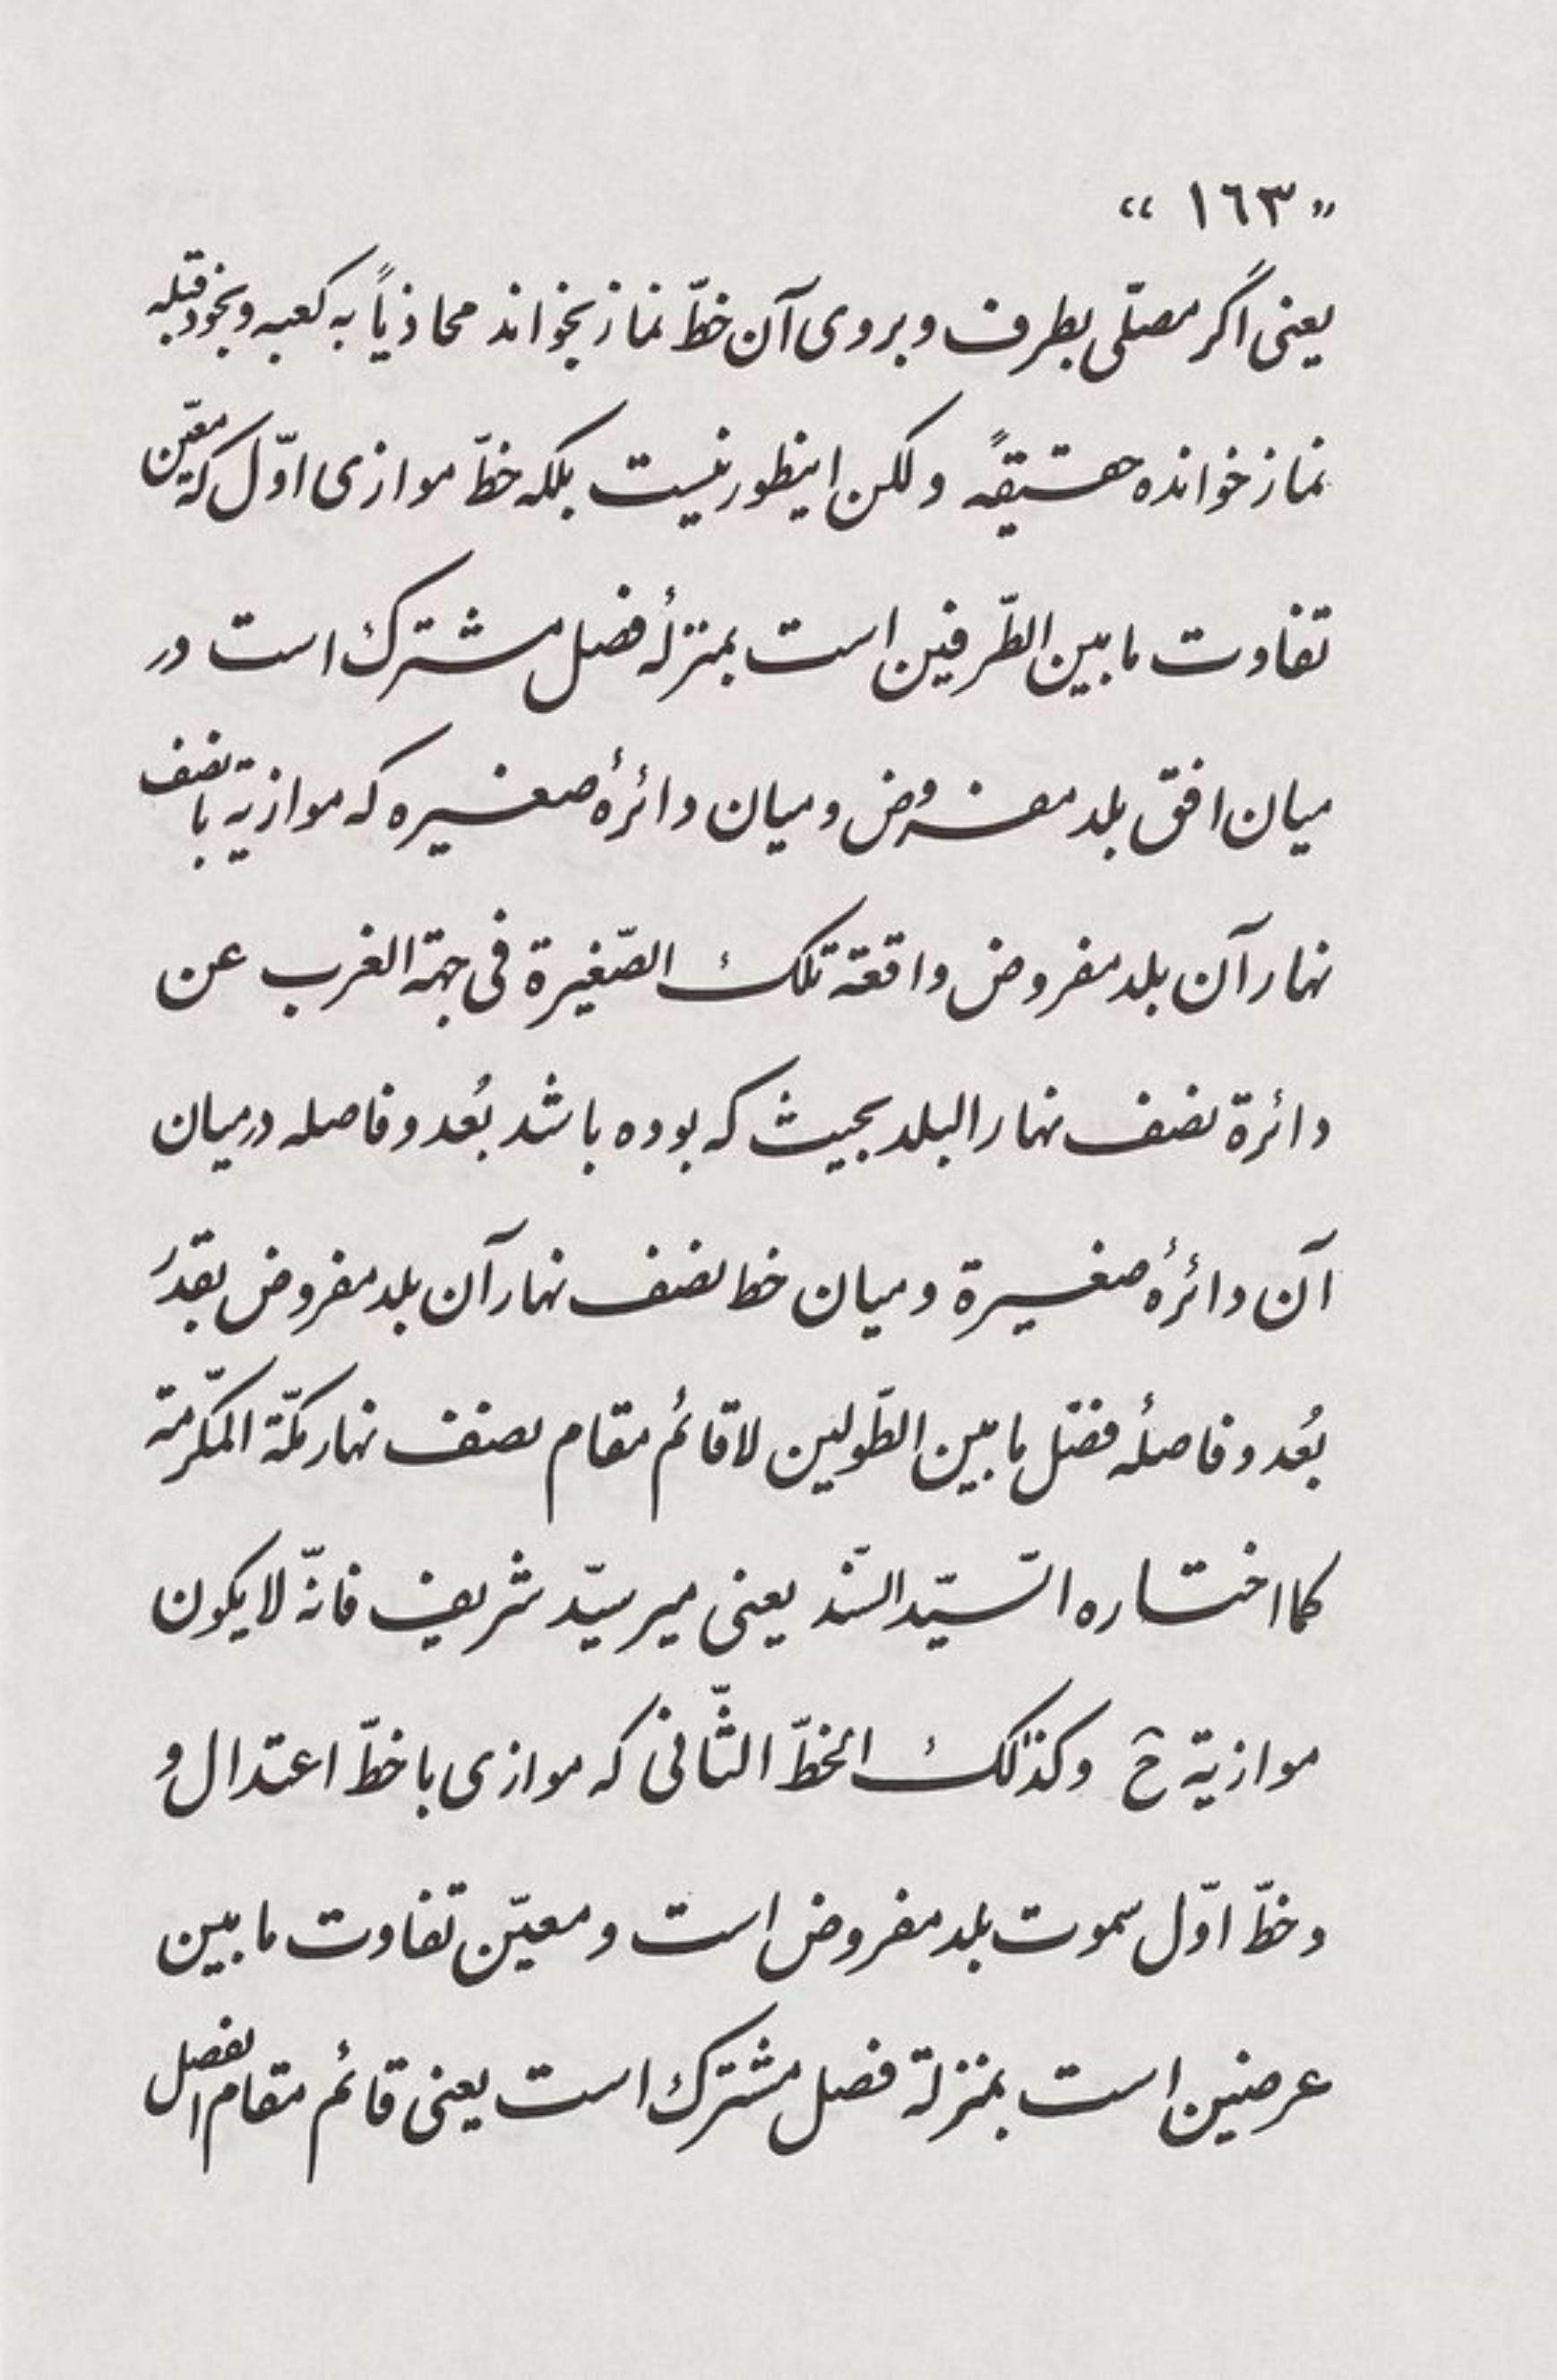 « ١٦٣ »
یعنی اگر مصلّی بطرف و بروی آن خطّ نماز بخواند محاذیاً به کعبه و بخود قبله
نماز خوانده حقیقةً ولکن اینطور نیست بلکه خطّ موازی اوّل که معیّن
تفاوت مابین الطّرفین است بمنزلهٔ فصل مشترک است در
میان افق بلد مفروض و میان دائرهٔ صغیره که موازیة با نصف
نهار آن بلد مفروض واقعة تلک الصّغیرة فی جهة الغرب عن
دائرة نصف نهار البلد بحیث که بوده باشد بُعد و فاصله درمیان
آن دائرهٔ صغیرة و میان خط نصف نهار آن بلد مفروض بقدر
بُعد و فاصلهٔ فضل مابین الطّولین لا قائم مقام نصف نهار مکّة المکرّمة
کما اختاره السّیّد السّند یعنی میر سیّد شریف فانّه لا یکون
موازیة ح وکذلک الخطّ الثّانی که موازی با خطّ اعتدال و
و خطّ اوّل سموت بلد مفروض است و معیّن تفاوت مابین
عرضین است بمنزلة فصل مشترک است یعنی قائم مقام الفصل